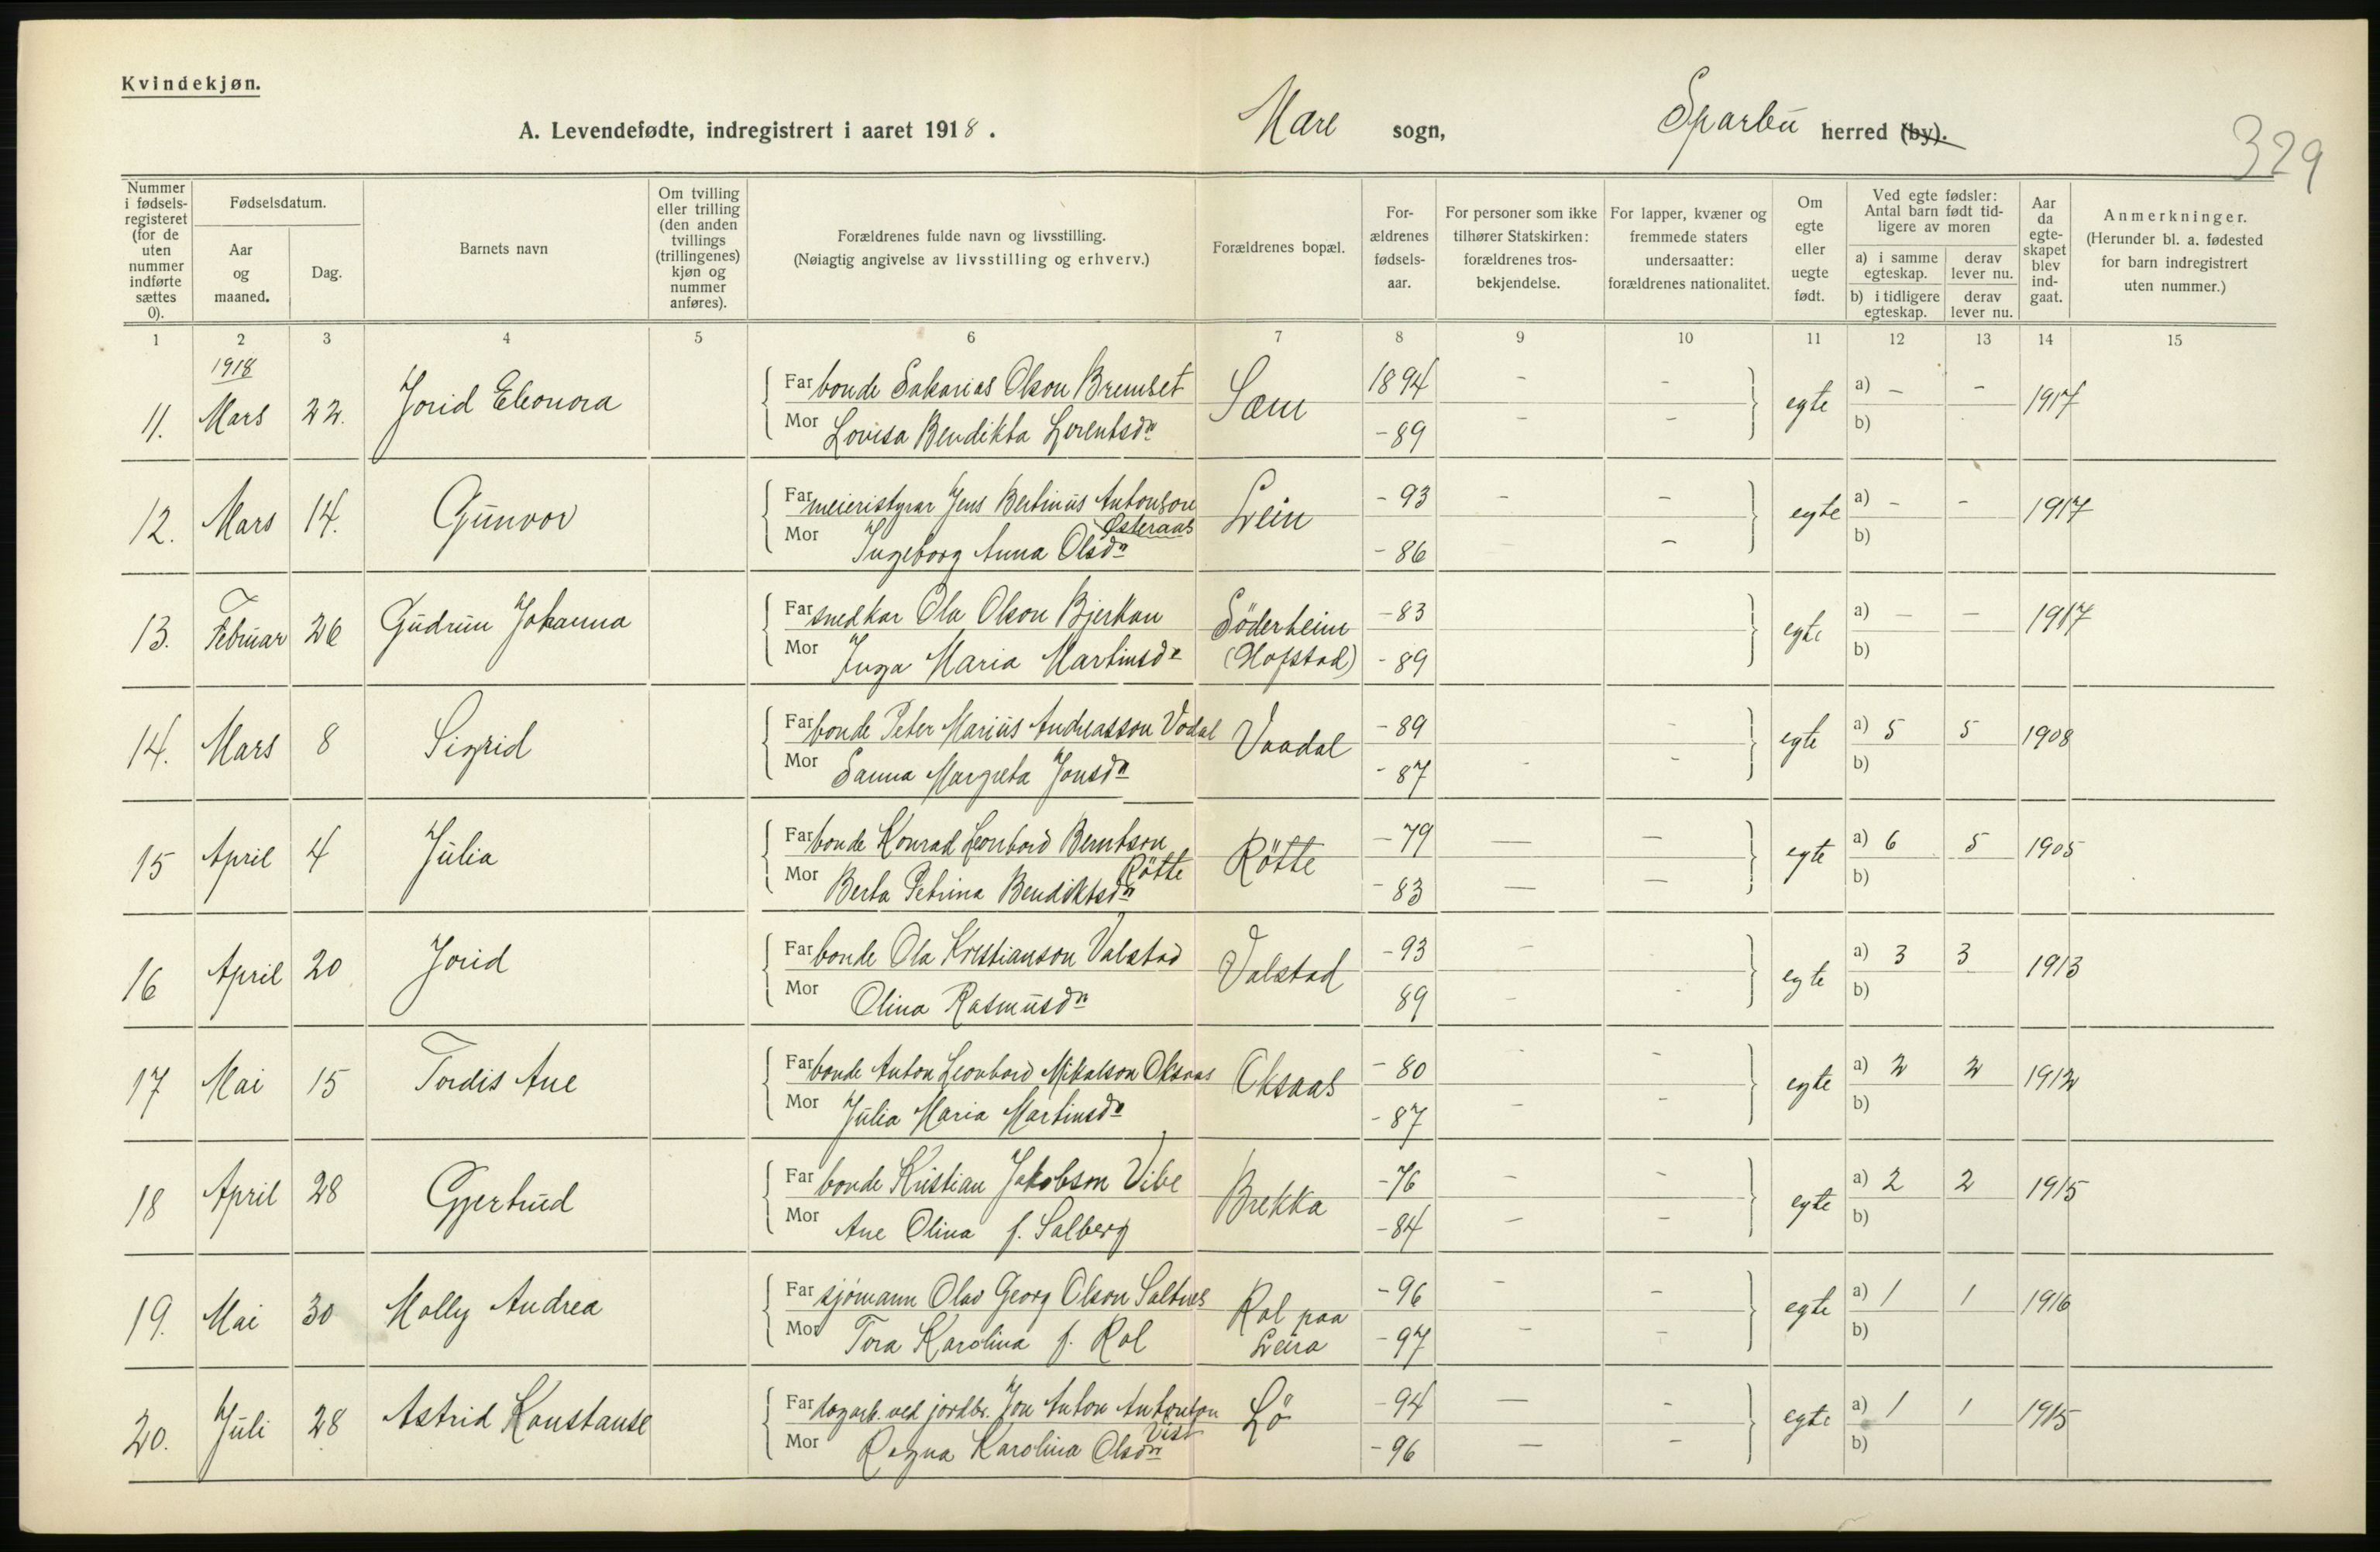 Kvindekjøn.
A. Levendefødte, indregistrert i aaret 1918.
Mære sogn,
Sparbu herred (by).
329
Nummer i fødsels-registeret (for de uten nummer indførte sættes 0).
Fødselsdatum.
Aar og maaned.
Dag.
Barnets navn
Om tvilling eller trilling (den anden tvillings (trillingenes) kjøn og nummer anføres).
Forældrenes fulde navn og livsstilling.
(Nøiagtig angivelse av livsstilling og erhverv.)
Forældrenes bopæl.
For-ældrenes fødsels-aar.
For personer som ikke tilhører Statskirken: forældrenes tros-bekjendelse.
For lapper, kvæner og fremmede staters undersaatter: forældrenes nationalitet.
Om egte eller uegte født.
Ved egte fødsler: Antal barn født tid-ligere av moren
a) i samme egteskap.
derav lever nu.
b) i tidligere egteskap.
derav lever nu.
Aar da egte-skapet blev ind-gaat.
Anmerkninger.
(Herunder bl. a. fødested for barn indregistrert uten nummer.)
1 2 3 4 5 6 7 8 9 10 11 12 13 14 15
1918
11. Mars 22. Jorid Eleonora Far bonde Sakarias Olson Bremset Sæm 1894 - - egte a) - - 1917
Mor Lovisa Bendikta Lorentsdn -89 - - b)
12. Mars 14. Gunvor Far meieristyrar Jens Bertinus Antonson Østeraas Lein -93 - - egte a) - - 1917
Mor Ingeborg Anna Olsdn -86 - - b)
13. Februar 26 Gudrun Johanna Far snedkar Ola Olson Bjerkan Söderheim (Hofstad) -83 egte a) - - 1917
Mor Inga Maria Martinsdn -89 b)
14. Mars 8 Sigrid Far bonde Peter Marius Andreasson Vodal Vaadal -89 - egte a) 5 5 1908
Mor Sanna Margreta Jonsdn -87 - - b)
15 April 4 Julia Far bonde Konrad Leonhard Berntson Rötte Rötte -79 - - egte a) 6 5 1905
Mor Berta Petrina Bendiktsdn -83 - - b)
16 April 20 Jorid Far bonde Ola Kristianson Valstad Valstad -93 - - egte a) 3 3 1913
Mor Olina Rasmusdn 89 - - b)
17 Mai 15 Tordis Ane Far bonde Anton Leonhard Mikalson Oksaas Oksaas -80 - - egte a) 2 2 1912
Mor Julia Maria Martinsdn -87 - - b)
18 April 28 Gjertrud Far bonde Kristian Jakobson Vibe Brekka -76 - - egte a) 2 2 1915
Mor Ane Olina f. Salberg -84 - - b)
19. Mai 30 Molly Andrea Far sjømann Olav Georg Olson Saltnes Rol paa Leira -96 - - egte a) 1 1 1916
Mor Tora Karolina f. Rol -97 - - b)
20. Juli 28 Astrid Konstanse Far dagarb. ved jordbr. Jon Anton Antonson Vist Lö -94 - - egte a) 1 1 1915
Mor Ragna Karolina Olsdn -96 - - b)